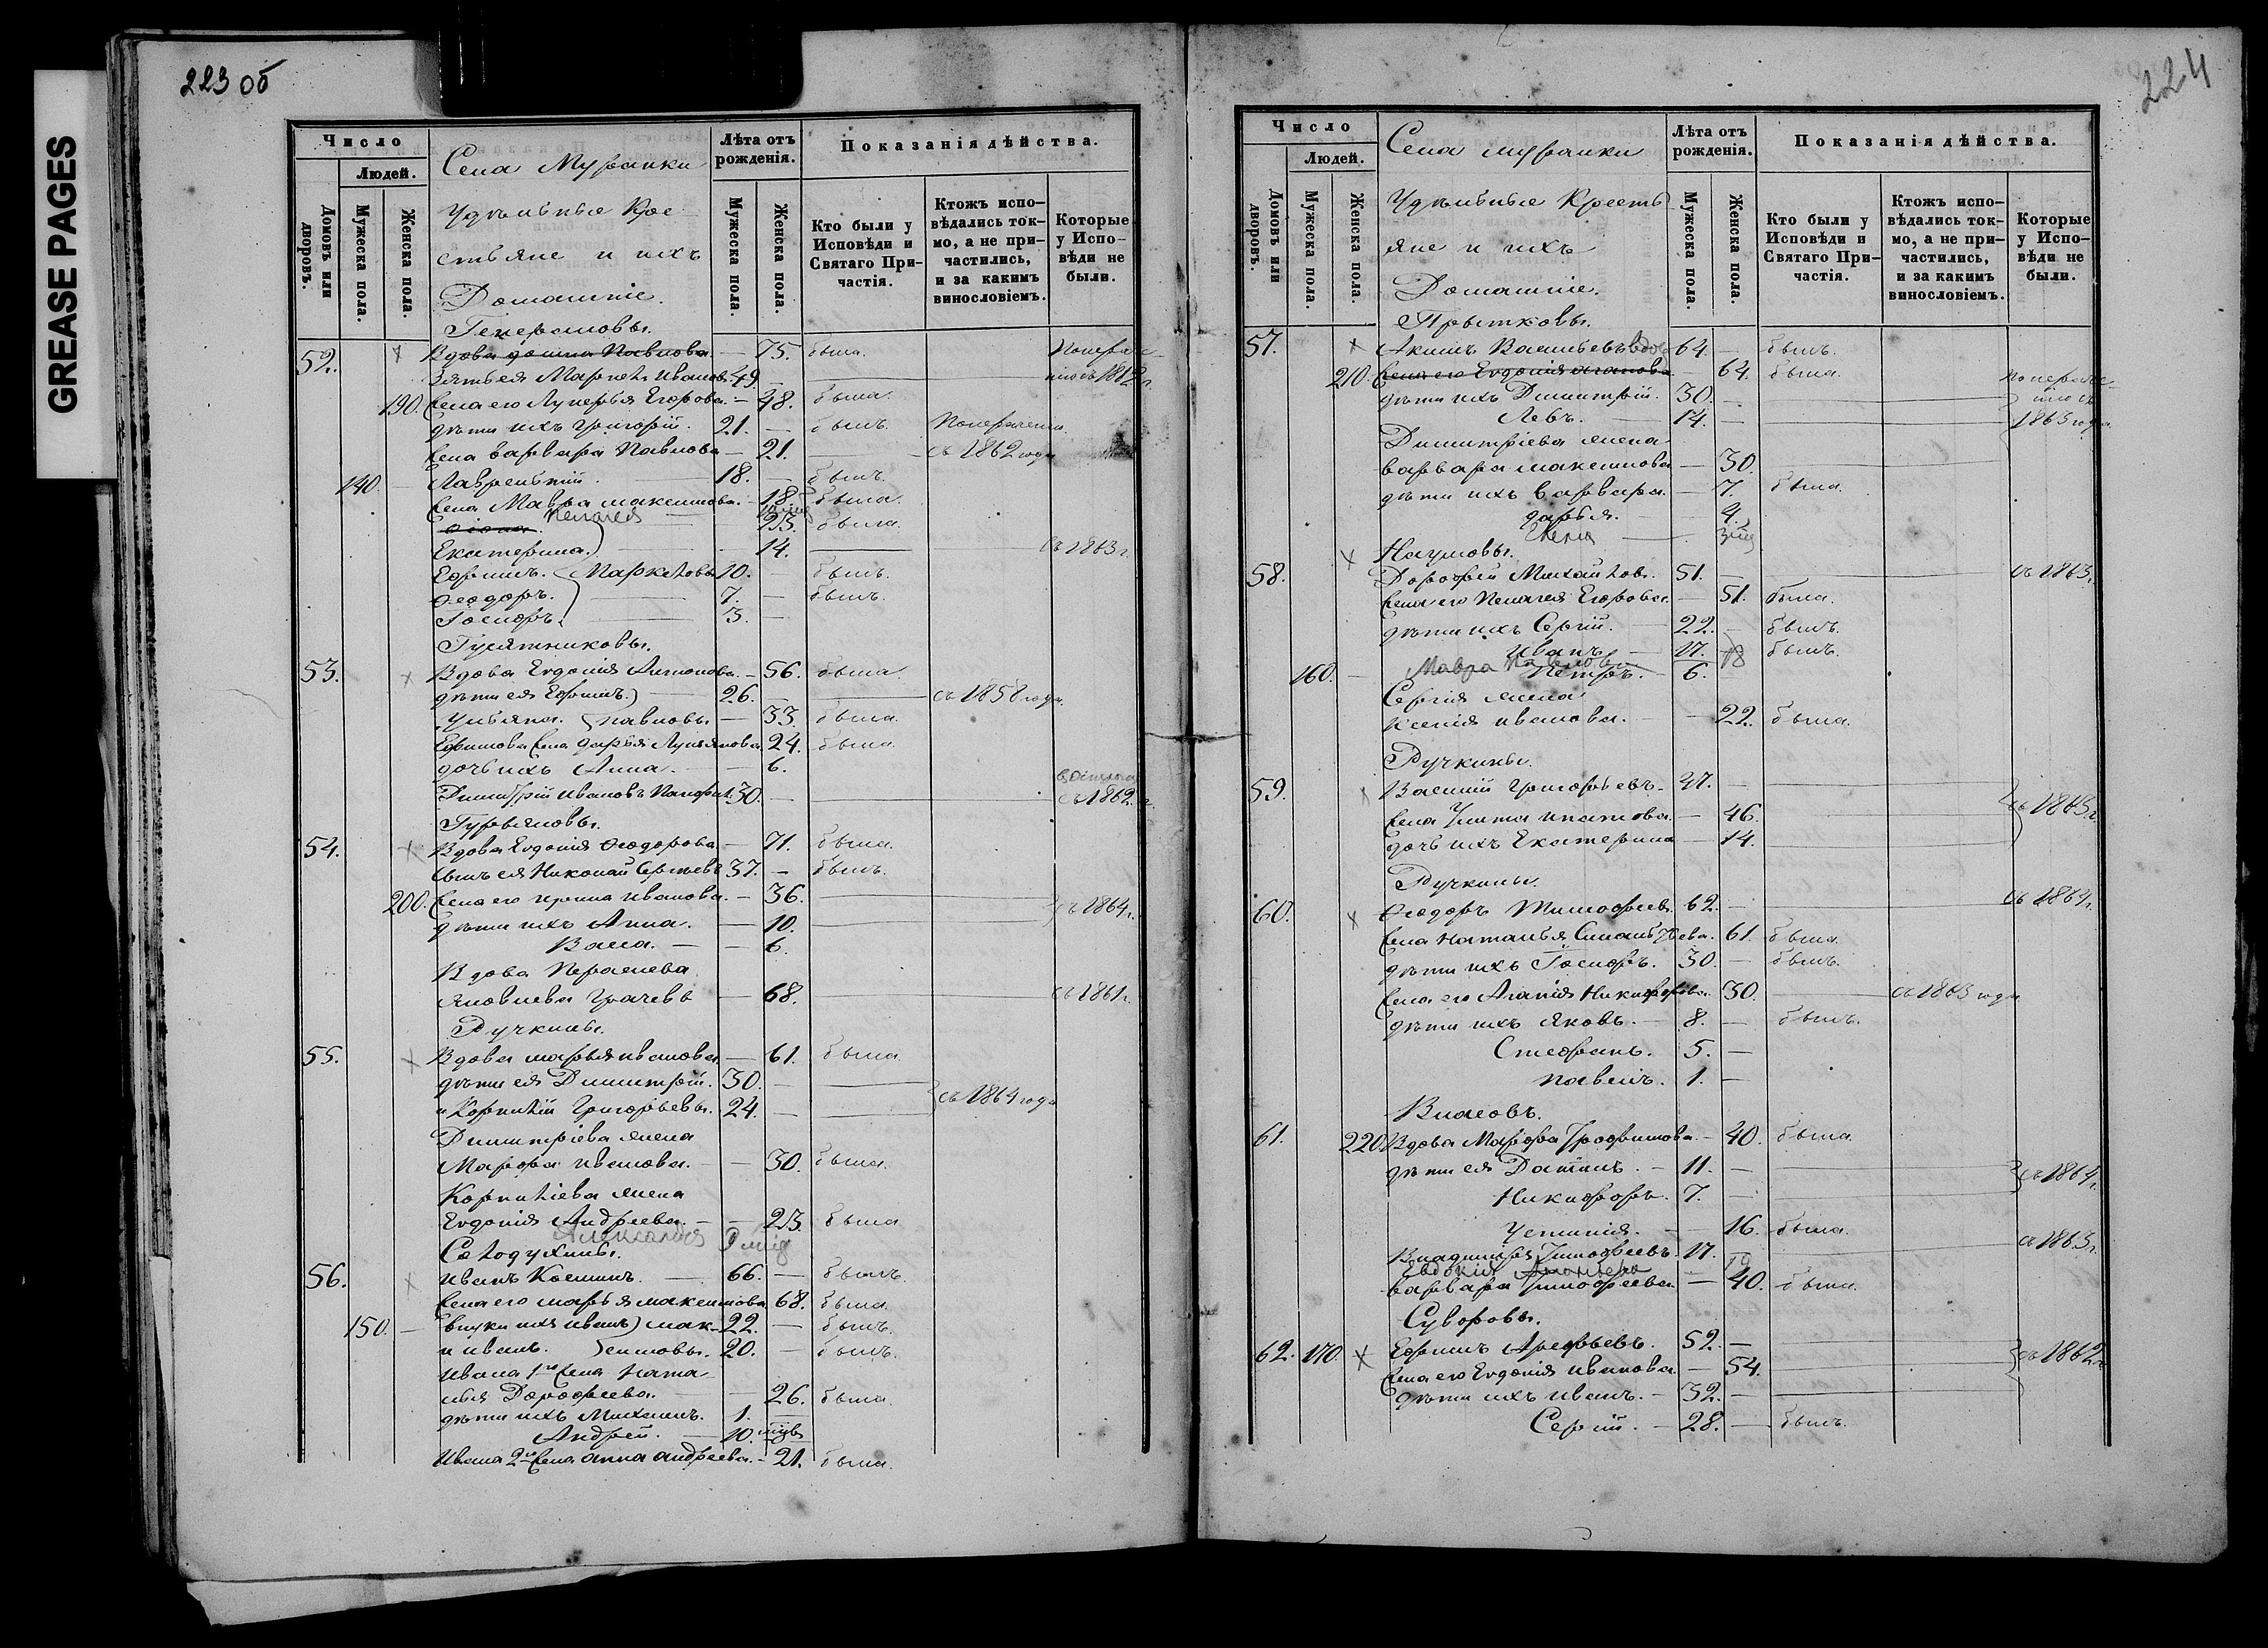 GREASE PAGES
223 об
Число
Людей.
Домовъ или дворовъ.
Мужеска пола.
Женска пола.
Села Муранки
Удѣльные Кре
стьяне и ихъ
Домашніе.
Лѣта отъ рожденія.
Мужеска пола.
Женска пола.
Показанія дѣйства.
Кто были у Исповѣди и Святаго Причастія.
Ктожъ исповѣдались токмо, а не причастились, и за какимъ винословіемъ.
Которые у Исповѣди не были.
52. Вдова Павлова. — 75. была.
Зять ея Маркелъ Иванов. 49
190. Жена его Лукерья Егорова. — 48. была.
дѣти ихъ Григорій. 21. — былъ.
Жена Варвара Павлова — 21. — съ 1862 года
140. Лаврентій. 18. — былъ.
Жена Мавра Максимова. — 18. была.
Пелагея 25. была.
Екатерина. — 14. — съ 1863 г.
Ефимъ. Маркеловы 10. — былъ.
Ѳеодоръ. 7. — былъ.
Іосифъ. 3. —
Гусятниковы.
53. Вдова Евдокія Антонова. — 56. была.
дѣти ея Ефимъ. 26. — съ 1858 года.
Ульяна. Павловы — 33. была.
Ефимова жена Дарья Лукиянова 24. была.
дочь ихъ Анна. — 6.
Димитрій Ивановъ 30. — съ 1862 г.
Гурьяновы.
54. Вдова Евдокія Ѳеодорова. — 71. была.
Сынъ ея Николай Сергѣевъ 37. — былъ.
200. Жена его Ирина Иванова. — 36. съ 1864 г.
дѣти ихъ Анна. — 10.
Васса. — 6.
Вдова Параскева
Яковлева Грачева — 68. съ 1861 г.
Ручкины.
55. Вдова Марья Иванова. — 61. была.
дѣти ея Димитрій. 30. —
и Корнилій Григорьевы. 24. — съ 1864 года
Димитріева жена
Марфа Иванова. — 30. была.
Корниліева жена
Евдокія Андреева. — 23. была.
Александра
Солодухины.
56. Иванъ Косминъ. — 66. — былъ.
Жена его Марья Максимова 68. была.
150. — внуки ихъ Иванъ) Мак- 22. — былъ.
и Иванъ. симовы. 20. — былъ.
Ивана 1го жена Ната
лья Дорофеева. — 26. была.
дѣти ихъ Михаилъ. 1.
Андрей. — 10. мцвъ
Ивана 2го жена Анна Андреева. — 21. была.
224
Число
Людей.
Домовъ или дворовъ.
Мужеска пола.
Женска пола.
Села Муранки
Удѣльные Кресть
яне и ихъ
Домашніе.
Лѣта отъ рожденія.
Мужеска пола.
Женска пола.
Показанія дѣйства.
Кто были у Исповѣди и Святаго Причастія.
Ктожъ исповѣдались токмо, а не причастились, и за какимъ винословіемъ.
Которые у Исповѣди не были.
Прытковы.
57. Акимъ Васильевъ вдов 64. — былъ.
210. Жена его Евдокія — 64. была.
дѣти ихъ Димитрій. 30. —
Левъ. — 14. — 1863 года
Димитріева жена
Варвара Максимова — 30.
дѣти ихъ Варвара. — 7. была.
Дарья. — 4.
Елена
Наумовы.
58. Дорофей Михайлов. 51. — съ 1863 г.
Жена его Пелагея Егорова. — 51. была.
дѣти ихъ Сергій. — 22. — былъ.
Иванъ. — 17. — былъ.
Мавра Павлова 18
160. — Петръ. — 6.
Сергія жена
Ксенія Иванова. — 22. была.
Ручкины.
59. Василій Григорьевъ. 47. —
Жена Улита Ипатова. — 46. съ 1863 г.
дочь ихъ Екатерина — 14.
Ручкины.
60. Ѳеодоръ Тимофеев. 62. — съ 1864 г.
Жена Наталья 61. была.
дѣти ихъ Іосифъ. 30. — былъ.
Жена его Агапія Никифорова. 30. — съ 1863 года
дѣти ихъ Яковъ. — 8. — былъ.
Стефанъ. 5. —
Павелъ. 1. —
Власовъ.
61. 220. Вдова Марфа Трофимова. — 40. была.
дѣти ея Даніилъ. — 11. — съ 1864 г.
Никифоръ. 7. —
Устинія. — 16. была.
Владиміръ Тимофеевъ. 17. съ 1863 г.
Евдокія 19
Варвара Тимофеева. — 40. была.
Суворовы.
62. 170. Ефимъ Арефьевъ. 52. —
Жена его Евдокія Иванова. — 54. съ 1862 г.
дѣти ихъ Иванъ. — 32. —
Сергій. — 28. — былъ.